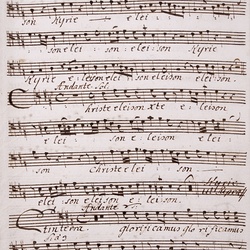 son Kyrie elei
son elei son elei son Kyrie
Kyrie eleison elei son eleison elei son.
Andante Sol:
Christe eleison Xte eleison
elei son elei son
son Christe elei son
elei son elei son elei son.
Andante
Et in terra glorificamus glorificamus